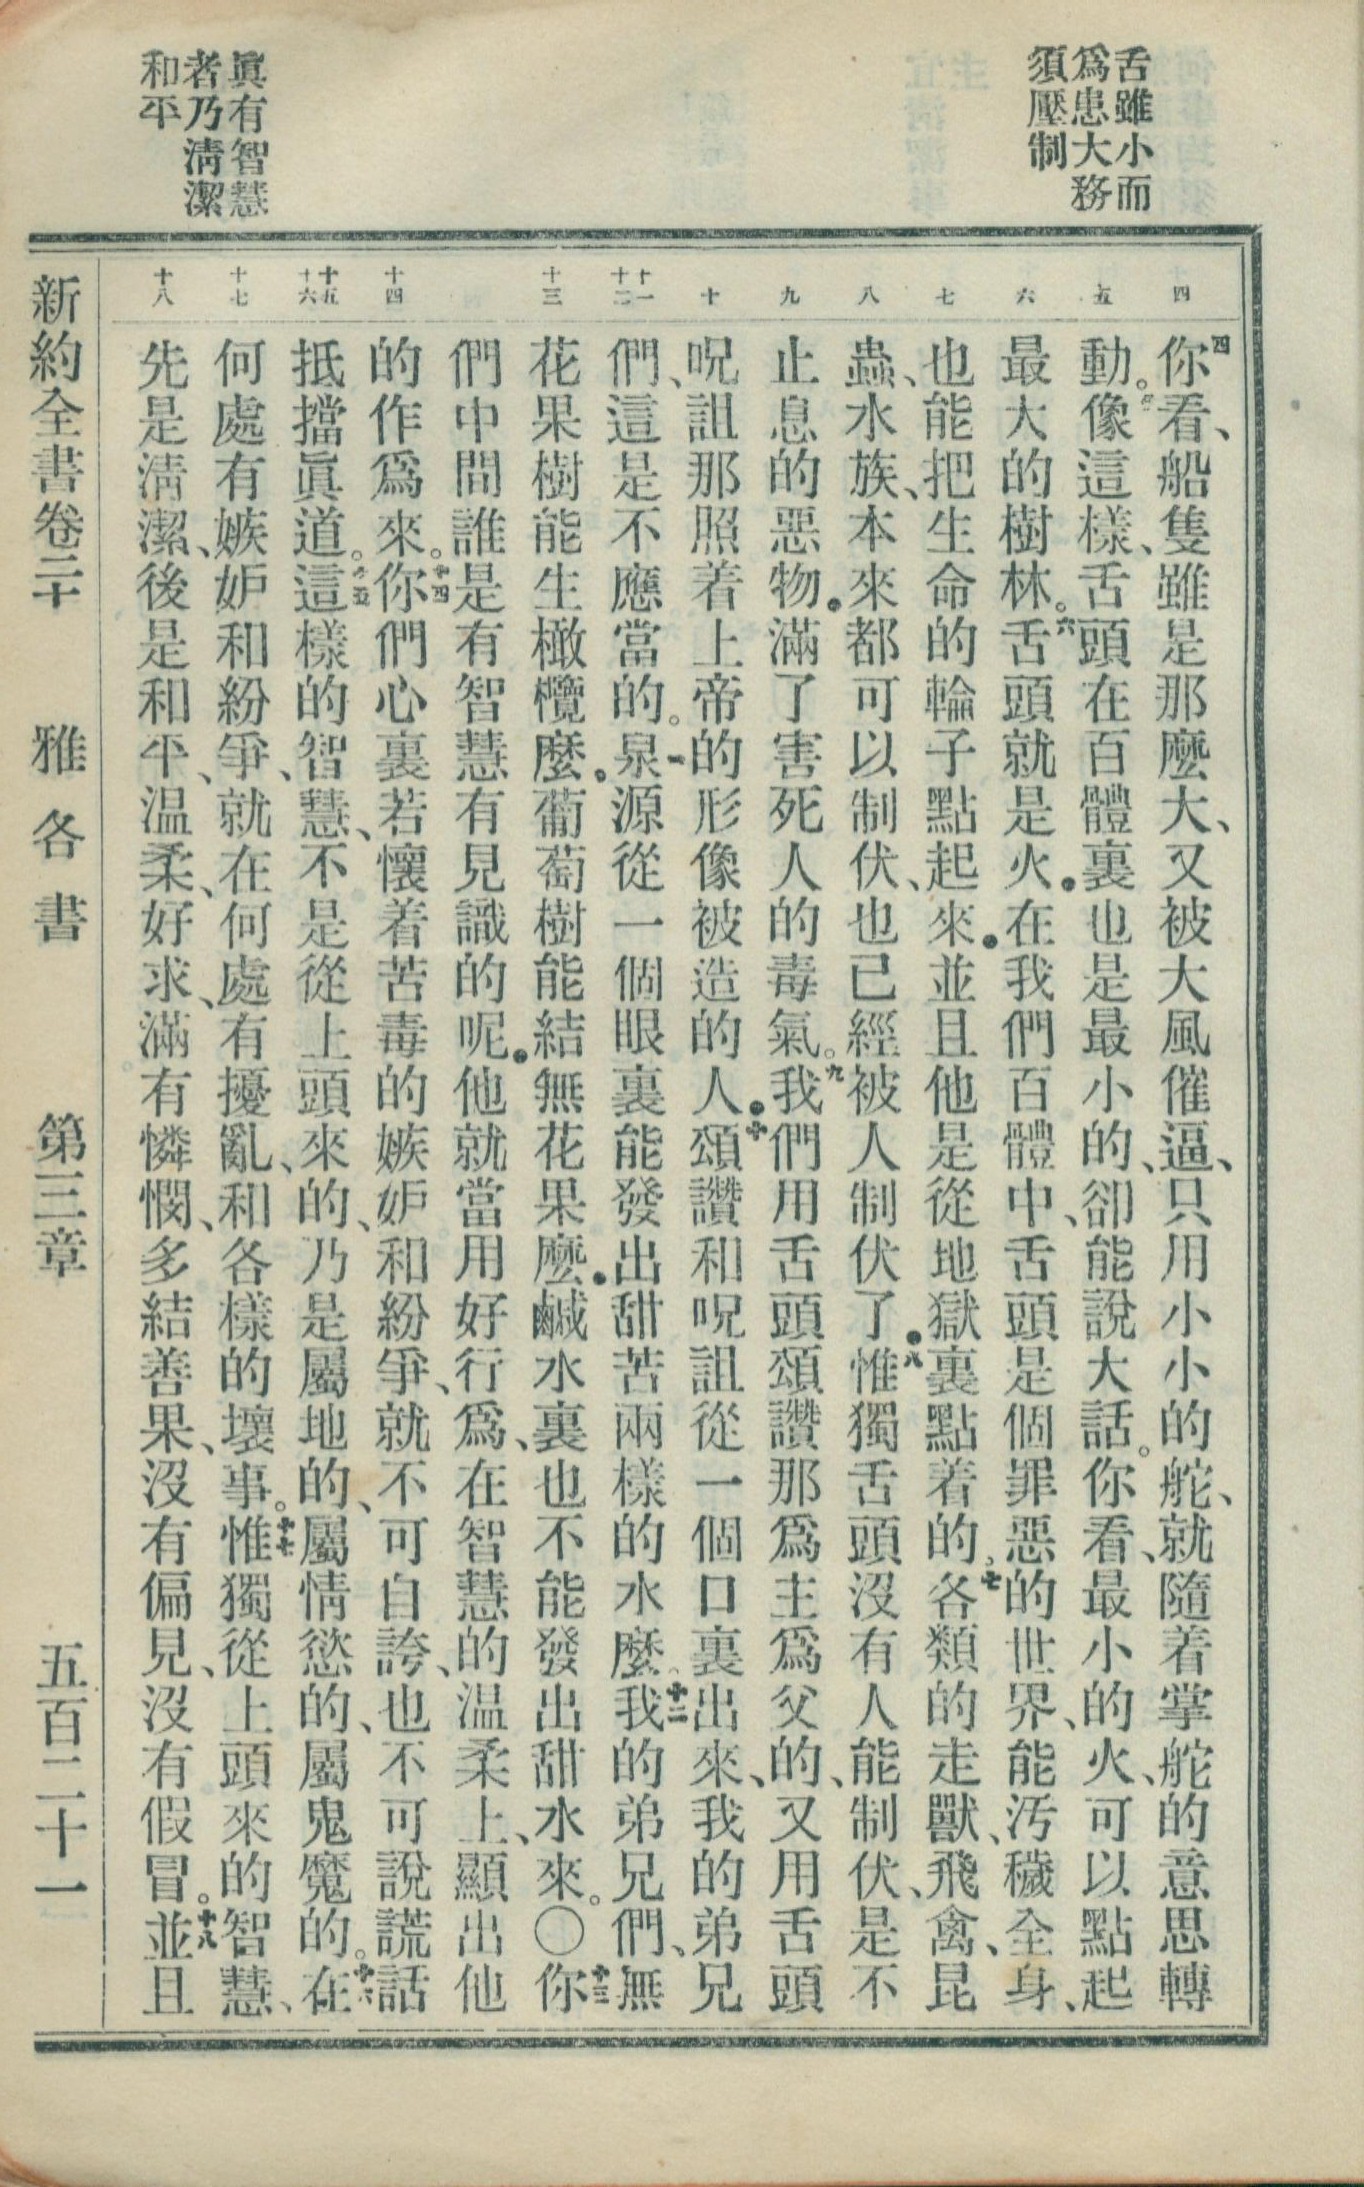 舌雖小而
爲患大務
須壓制
眞有智慧
者乃淸潔
和平
四
五
六
七
八
九
十
十一
十二
十三
十四
十五
十六
十七
十八
四你看、船隻雖是那麽大、又被大風催逼、只用小小的舵、就隨着掌舵的意思轉
動。五像這樣、舌頭在百體裏也是最小的、卻能說大話。你看、最小的火、可以點起
最大的樹林。六舌頭就是火.在我們百體中、舌頭是個罪惡的世界、能汚穢全身、
也能把生命的輪子點起來.並且他是從地獄裏點着的。七各類的走獸、飛禽、昆
蟲、水族、本來都可以制伏、也已經被人制伏了.八惟獨舌頭沒有人能制伏、是不
止息的惡物.滿了害死人的毒氣。九我們用舌頭頌讚那爲主爲父的、又用舌頭
呪詛那照着上帝的形像被造的人.十頌讚和呪詛從一個口裏出來、我的弟兄
們、這是不應當的。十一泉源從一個眼裏能發出甜苦兩樣的水麽。十二我的弟兄們、無
花果樹能生橄欖麽.葡萄樹能結無花果麽.鹹水裏也不能發出甜水來。○十三你
們中間誰是有智慧有見識的呢.他就當用好行爲、在智慧的温柔上、顯出他
的作爲來。十四你們心裏若懷着苦毒的嫉妒、和紛爭、就不可自誇、也不可說謊話
抵擋眞道。十五這樣的智慧、不是從上頭來的、乃是屬地的、屬情慾的、屬鬼魔的。十六在
何處有嫉妒和紛爭、就在何處有擾亂、和各樣的壞事。十七惟獨從上頭來的智慧、
先是淸潔、後是和平、温柔、好求、滿有憐憫、多結善果、沒有偏見、沒有假冒。十八並且
新約全書卷二十 雅各書 第三章 五百二十一